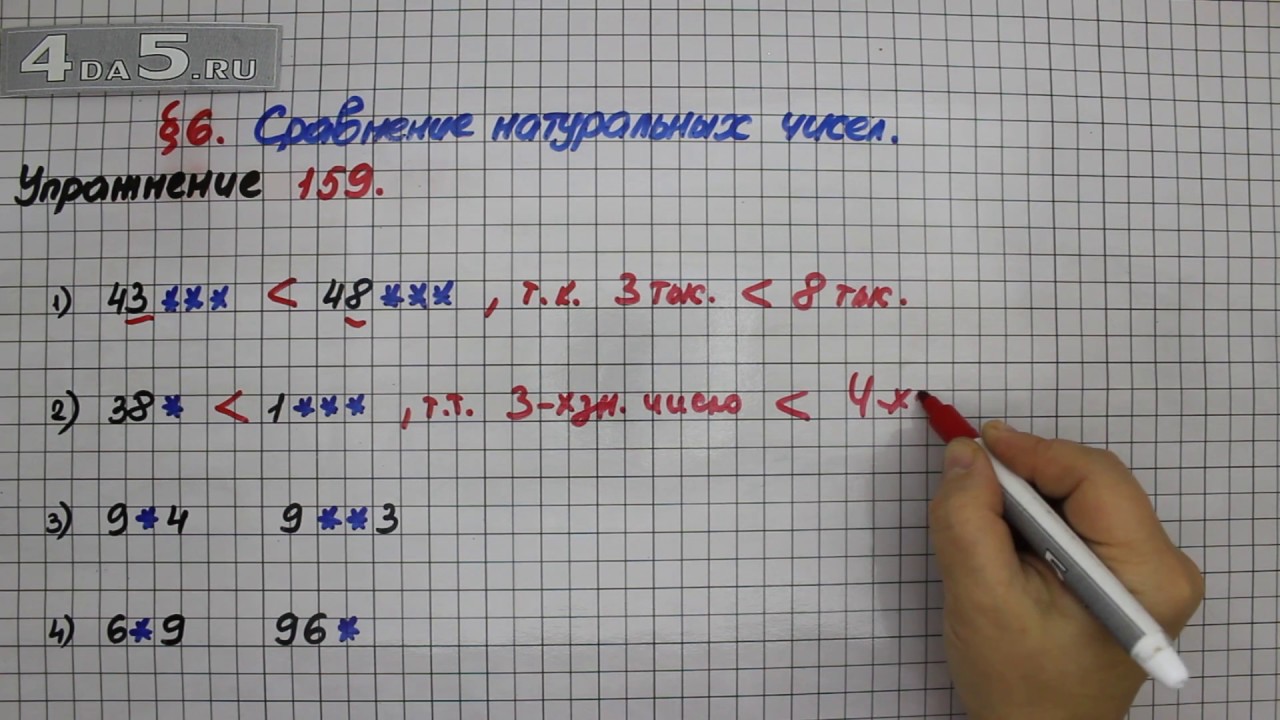 4DA5.RU
§6. Сравнение натуральных чисел.
Упражнение 159.
1) 43*** < 48*** , т.к. 3 тыс. < 8 тыс.
2) 38* < 1*** , т.т. 3-хзн. число < 4х
3) 9*4 9**3
4) 6*9 96*